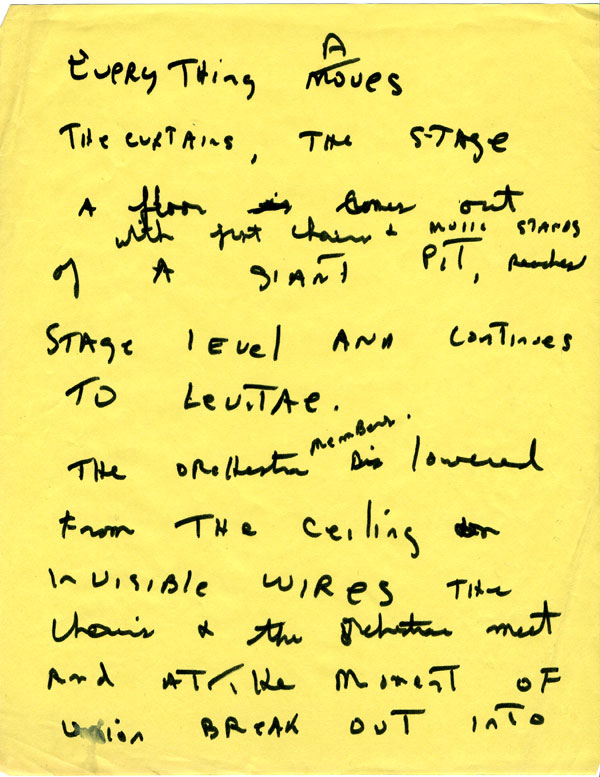 A
EVERYTHING MOVES
THE CURTAINS, THE STAGE
A floor is comes out
with just chairs & MUSIC STANDS
of A GIANT PIT, Reaches
STAGE level AND CONTINUES
TO LEVITAE.
members.
THE ORCHESTRA is lowered
From THE Ceiling on
INVISIBLE WIRES THE
Chairs & the Orchestra meet
And AT THE MOMENT OF
Union BREAK OUT INTO